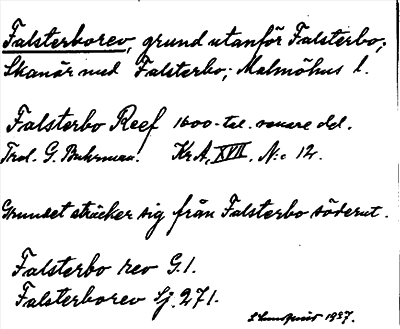 Falsterborev, grund utanför Falsterbo;
Skanör med Falsterbo; Malmöhus l.
Falsterbo Reef 1600-tal. senare del.
Trol. G. Buhrman. Kr A, XVII, N:o 12.
Grundet sträcker sig från Falsterbo söderut.
Falsterbo rev G.1.
Falsterborev Sj. 271.
1937.